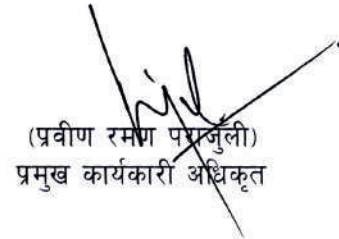 (प्रवीण रमण पराजुली)
प्रमुख कार्यकारी अधिकृत